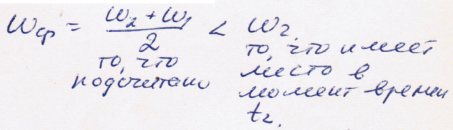 Wср = (W₂ + W₁) / 2 < W₂.
то, что подсчитано
то, что имеет
место в
момент времени
t₂.